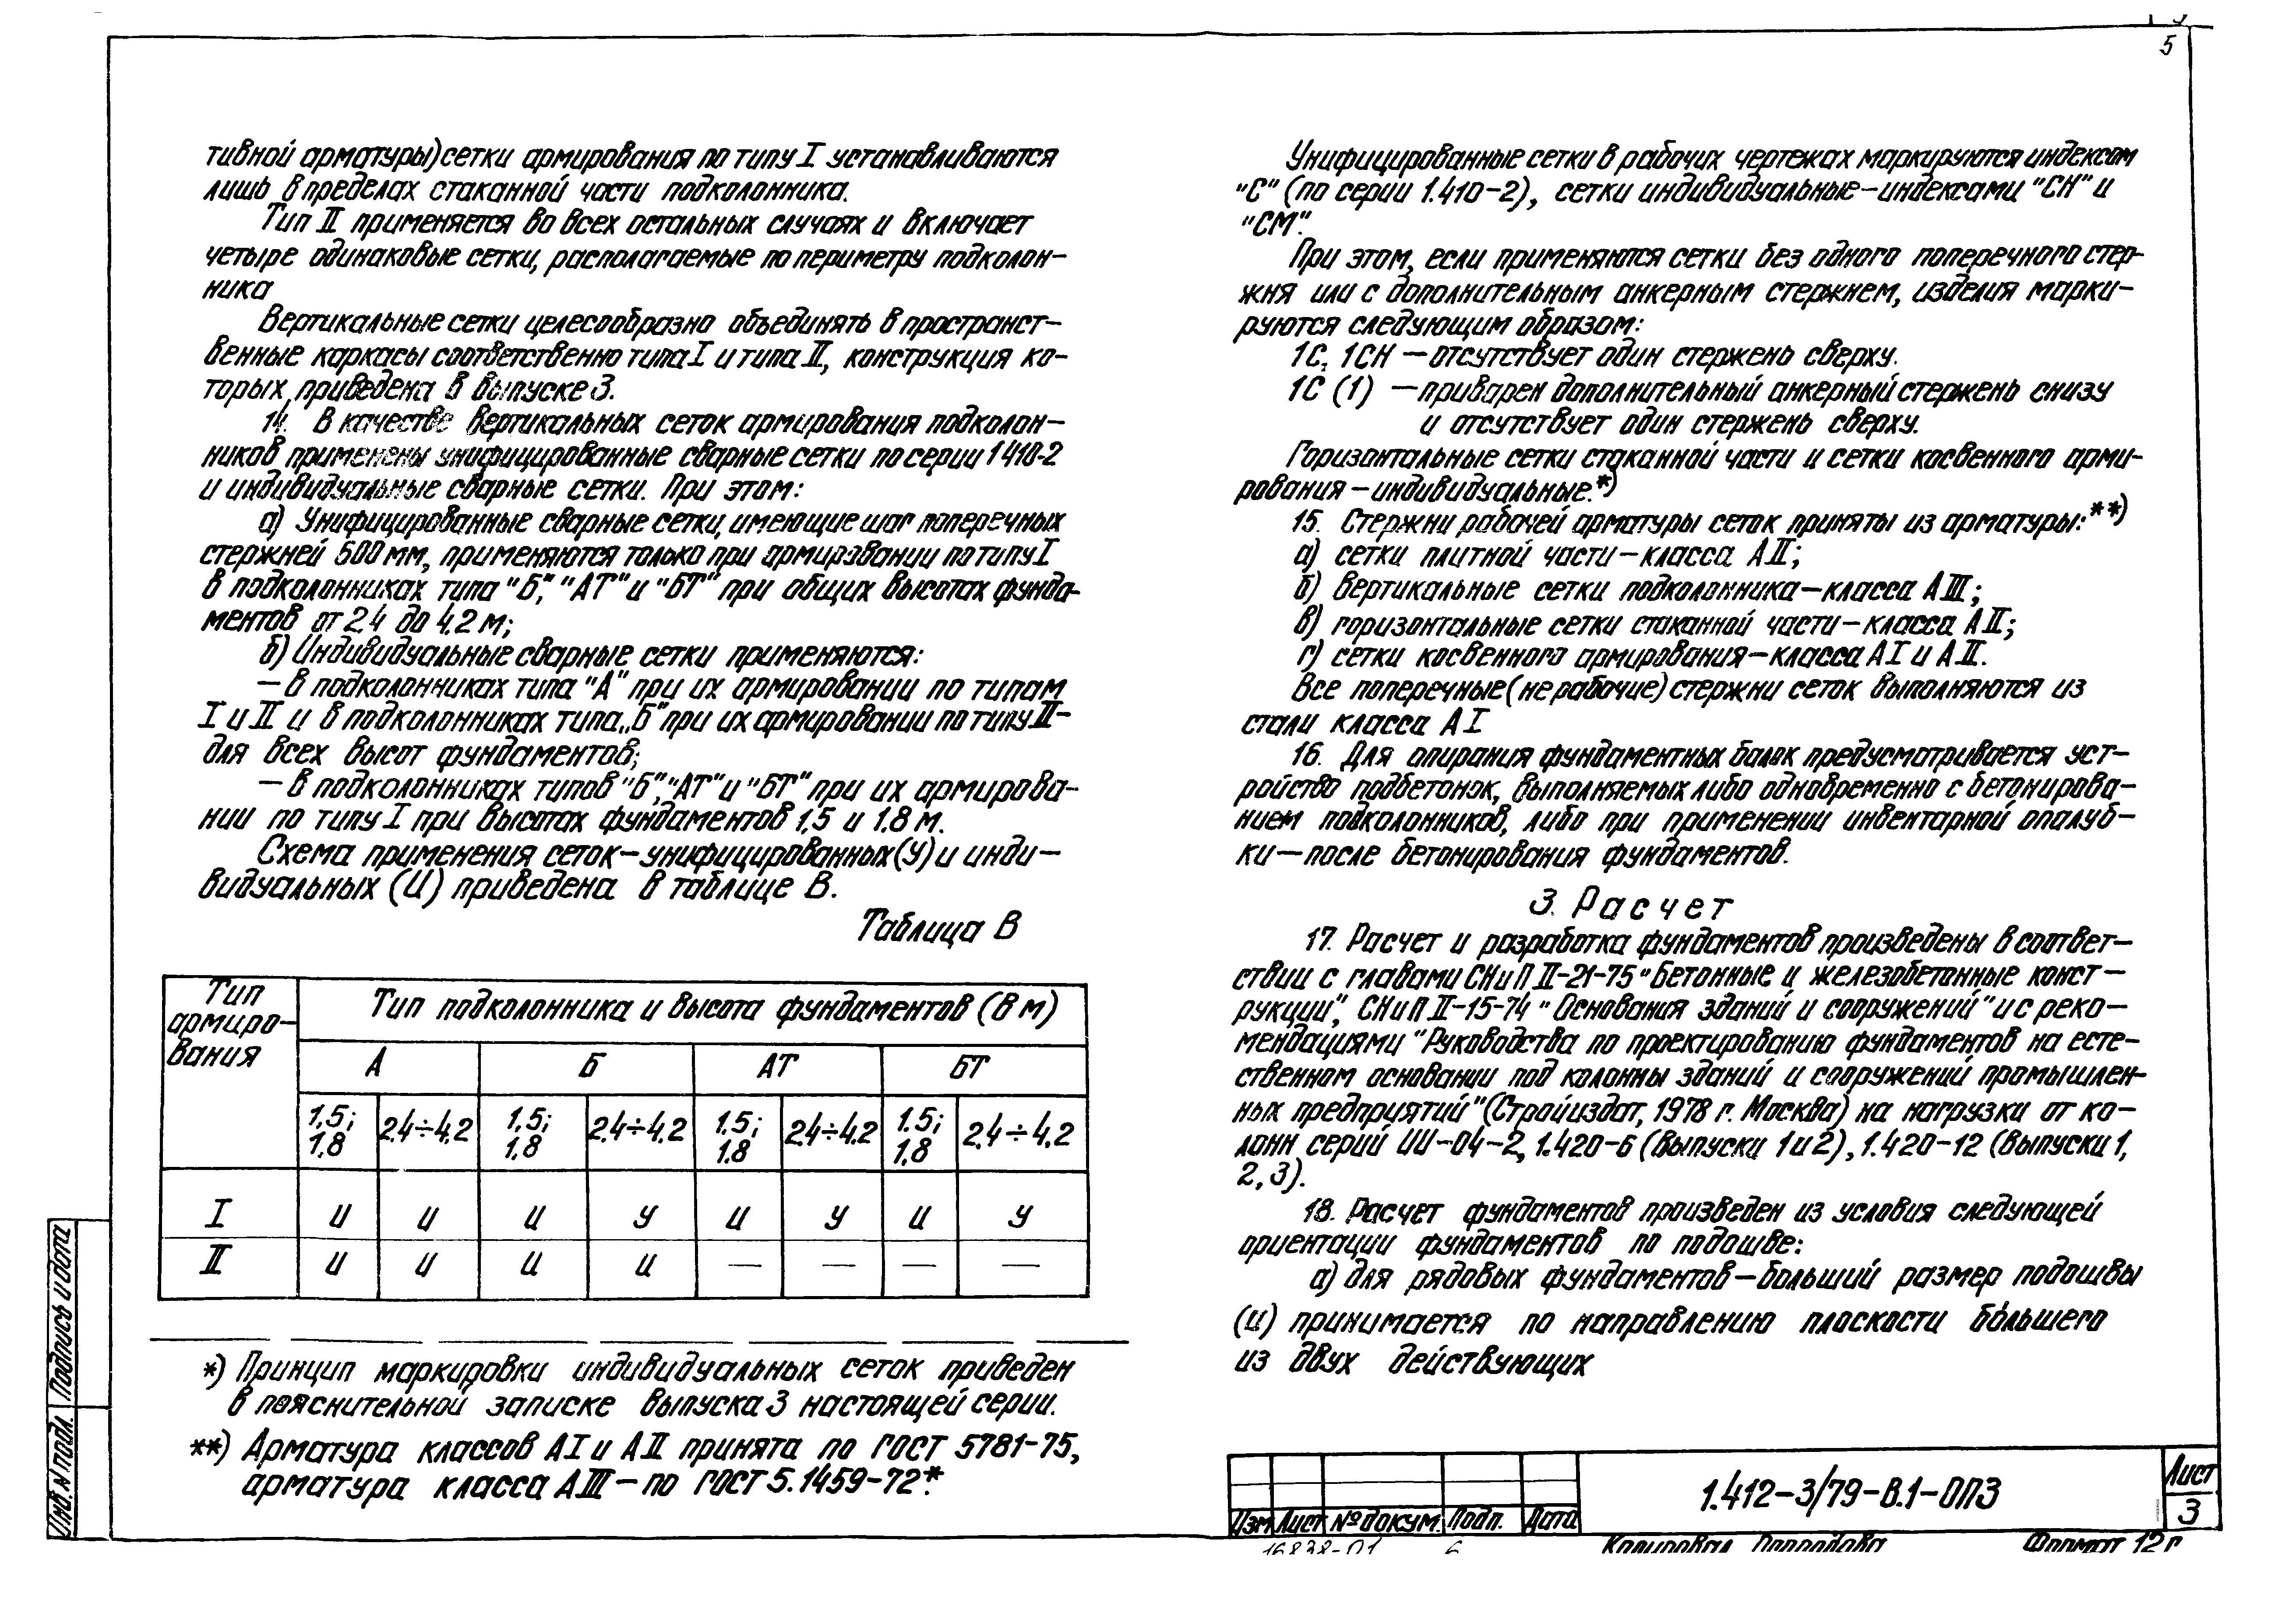 5
тивной арматуры) сетки армирования по типу I устанавливаются
лишь в пределах стаканной части подколонника.
Тип II применяется во всех остальных случаях и включает
четыре одинаковые сетки, располагаемые по периметру подколон-
ника
Вертикальные сетки целесообразно объединять в пространст-
венные каркасы соответственно типа I и типа II, конструкция ко-
торых приведена в выпуске 3.
14. В качестве вертикальных сеток армирования подколон-
ников применены унифицированные сварные сетки по серии 1410-2
и индивидуальные сварные сетки. При этом:
а) Унифицированные сварные сетки, имеющие шаг поперечных
стержней 500 мм, применяются только при армировании по типу I
в подколонниках типа "Б", "АТ" и "БТ" при общих высотах фунда-
ментов от 2.4 до 4.2 м;
б) Индивидуальные сварные сетки применяются:
— в подколонниках типа "А" при их армировании по типам
I и II и в подколонниках типа „Б" при их армировании по типу II-
для всех высот фундаментов;
— в подколонниках типов "Б", "АТ" и "БТ" при их армирова-
нии по типу I при высотах фундаментов 1.5 и 1.8 м.
Схема применения сеток-унифицированных (У) и инди-
видуальных (И) приведена в таблице В.
Таблица В
Тип армиро-вания
Тип подколонника и высота фундаментов (в м)
А Б АТ БТ
1,5; 1,8 2,4÷4,2 1,5; 1,8 2,4÷4,2 1,5; 1,8 2,4÷4,2 1,5; 1,8 2,4÷4,2
I И И И У И У И У
II И И И И — — — —
*) Принцип маркировки индивидуальных сеток приведен
в пояснительной записке выпуска 3 настоящей серии.
**) Арматура классов АI и АII принята по ГОСТ 5781-75,
арматура класса АIII — по ГОСТ 5.1459-72*.
Унифицированные сетки в рабочих чертежах маркируются индексом
"С" (по серии 1.410-2), сетки индивидуальные — индексами "СН" и
"СМ".
При этом, если применяются сетки без одного поперечного стер-
жня или с дополнительным анкерным стержнем, изделия марки-
руются следующим образом:
1С, 1СН — отсутствует один стержень сверху.
1С (1) — приварен дополнительный анкерный стержень снизу
и отсутствует один стержень сверху.
Горизонтальные сетки стаканной части и сетки косвенного арми-
рования — индивидуальные.*)
15. Стержни рабочей арматуры сеток приняты из арматуры:**)
а) сетки плитной части — класса АII;
б) вертикальные сетки подколонника — класса АIII;
в) горизонтальные сетки стаканной части — класса АII;
г) сетки косвенного армирования — класса АI и АII.
Все поперечные (не рабочие) стержни сеток выполняются из
стали класса АI
16. Для опирания фундаментных балок предусматривается уст-
ройство подбетонок, выполняемых либо одновременно с бетонирова-
нием подколонников, либо при применении инвентарной опалуб-
ки — после бетонирования фундаментов.
3. Расчет
17. Расчет и разработка фундаментов произведены в соответ-
ствии с главами СНиП II-21-75 "Бетонные и железобетонные конст-
рукции", СНиП II-15-74 "Основания зданий и сооружений" и с реко-
мендациями "Руководства по проектированию фундаментов на есте-
ственном основании под колонны зданий и сооружений промышлен-
ных предприятий" (Стройиздат, 1978 г. Москва) на нагрузки от ко-
лонн серий ИИ-04-2, 1.420-6 (выпуски 1 и 2), 1.420-12 (выпуски 1,
2, 3).
18. Расчет фундаментов произведен из условия следующей
ориентации фундаментов по подошве:
а) для рядовых фундаментов — больший размер подошвы
(и) принимается по направлению плоскости бо́льшего
из двух действующих
Инв. N подл. Подпись и дата
Изм Лист № докум. Подп. Дата
1.412-3/79-В.1-ОПЗ
Лист
3
16838-01 6
Копировал Формат 12г